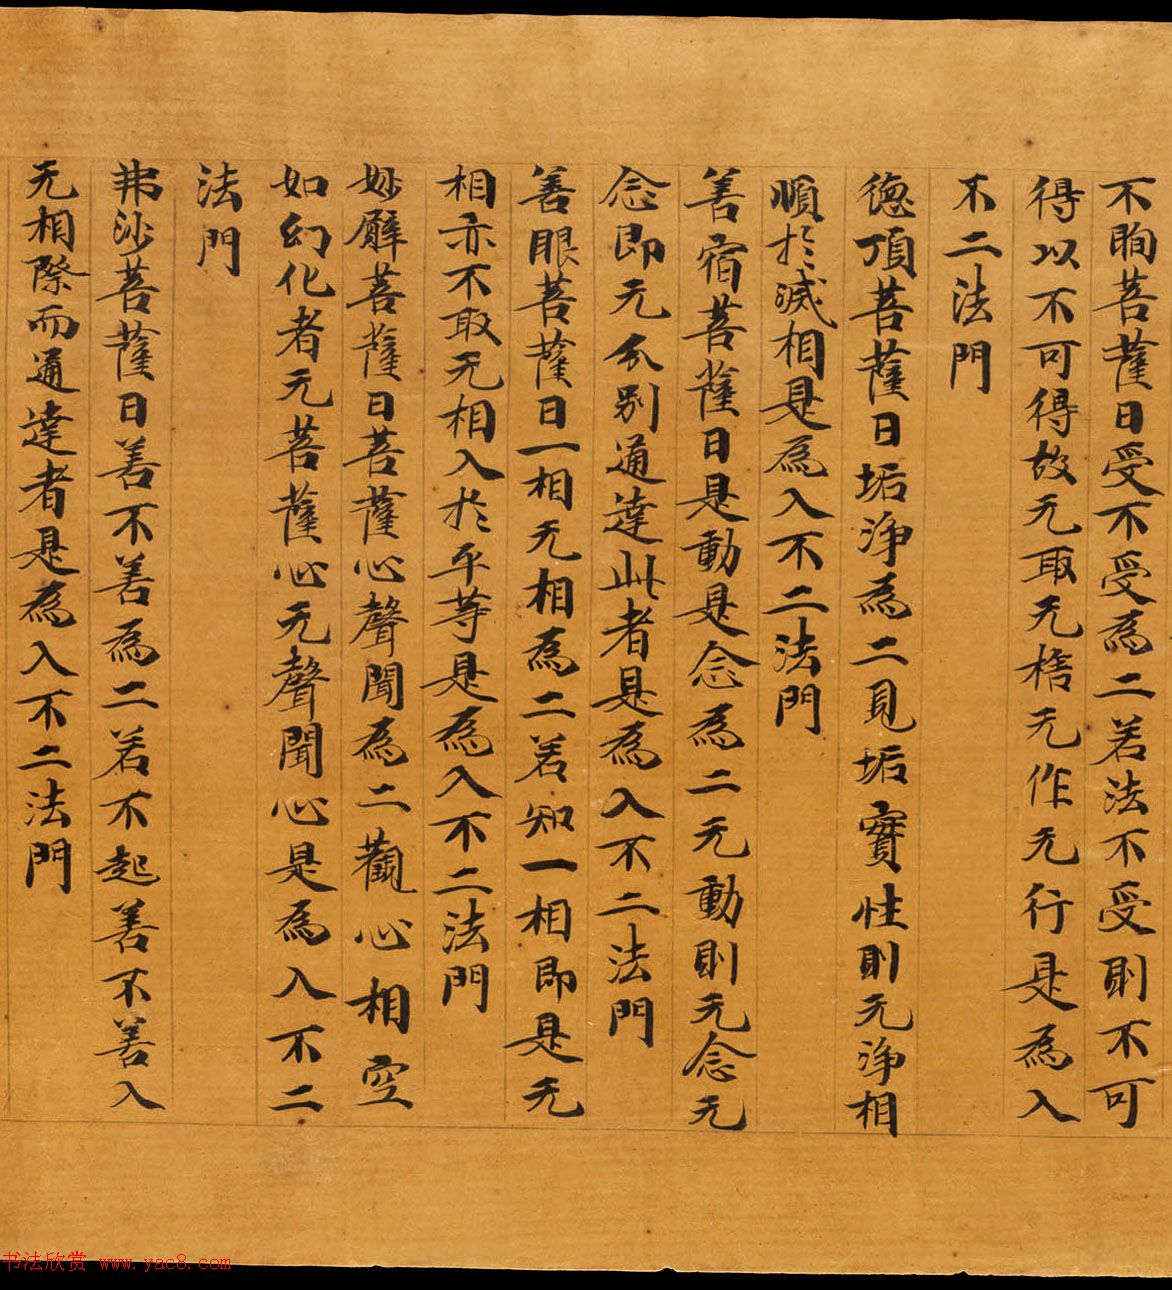 不眴菩薩曰受不受為二若法不受則不可
得以不可得故无取无捨无作无行是為入
不二法門
德頂菩薩曰垢淨為二見垢實性則无淨相
順於滅相是為入不二法門
善宿菩薩曰是動是念為二无動則无念无
念即无分別通達此者是為入不二法門
善眼菩薩曰一相无相為二若知一相即是无
相亦不取无相入於平等是為入不二法門
妙臂菩薩曰菩薩心聲聞為二觀心相空
如幻化者无菩薩心无聲聞心是為入不二
法門
弗沙菩薩曰善不善為二若不起善不善入
无相際而通達者是為入不二法門
书法欣赏 www.yac8.com